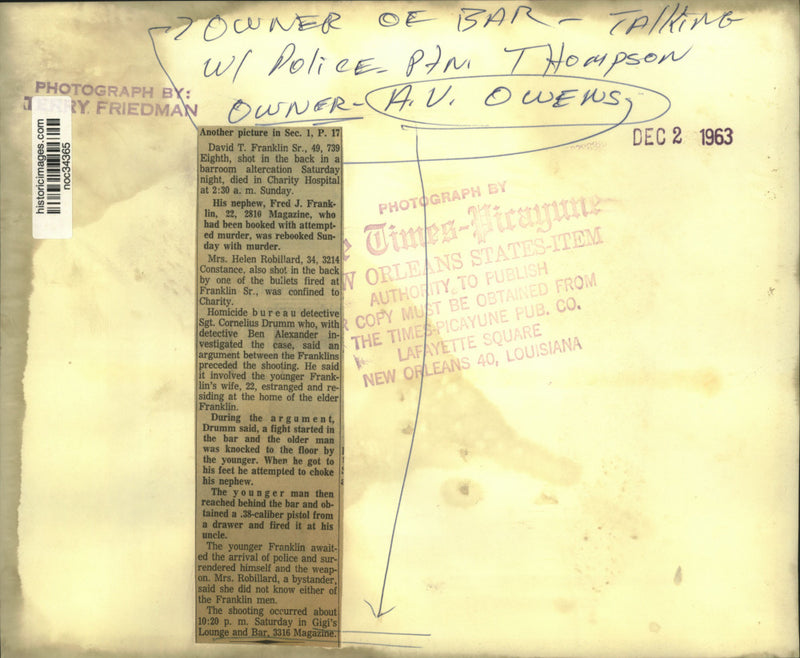 OWNER OF BAR - TALKING
W/ POLICE. PTN. THOMPSON
OWNER- A.V. OWENS
PHOTOGRAPH BY:
JERRY FRIEDMAN
DEC 2 1963
historicimages.com
noc34365
Another picture in Sec. 1, P. 17
David T. Franklin Sr., 49, 739
Eighth, shot in the back in a
barroom altercation Saturday
night, died in Charity Hospital
at 2:30 a. m. Sunday.
His nephew, Fred J. Frank-
lin, 22, 2810 Magazine, who
had been booked with attempt-
ed murder, was rebooked Sun-
day with murder.
Mrs. Helen Robillard, 34, 3214
Constance, also shot in the back
by one of the bullets fired at
Franklin Sr., was confined to
Charity.
Homicide bureau detective
Sgt. Cornelius Drumm who, with
detective Ben Alexander in-
vestigated the case, said an
argument between the Franklins
preceded the shooting. He said
it involved the younger Frank-
lin's wife, 22, estranged and re-
siding at the home of the elder
Franklin.
During the argument,
Drumm said, a fight started in
the bar and the older man
was knocked to the floor by
the younger. When he got to
his feet he attempted to choke
his nephew.
The younger man then
reached behind the bar and ob-
tained a .38-caliber pistol from
a drawer and fired it at his
uncle.
The younger Franklin await-
ed the arrival of police and sur-
rendered himself and the weap-
on. Mrs. Robillard, a bystander,
said she did not know either of
the Franklin men.
The shooting occurred about
10:20 p. m. Saturday in Gigi's
Lounge and Bar, 3316 Magazine.
PHOTOGRAPH BY
Times-Picayune
ORLEANS STATES-ITEM
AUTHORITY TO PUBLISH
COPY MUST BE OBTAINED FROM
THE TIMES-PICAYUNE PUB. CO.
LAFAYETTE SQUARE
NEW ORLEANS 40, LOUISIANA